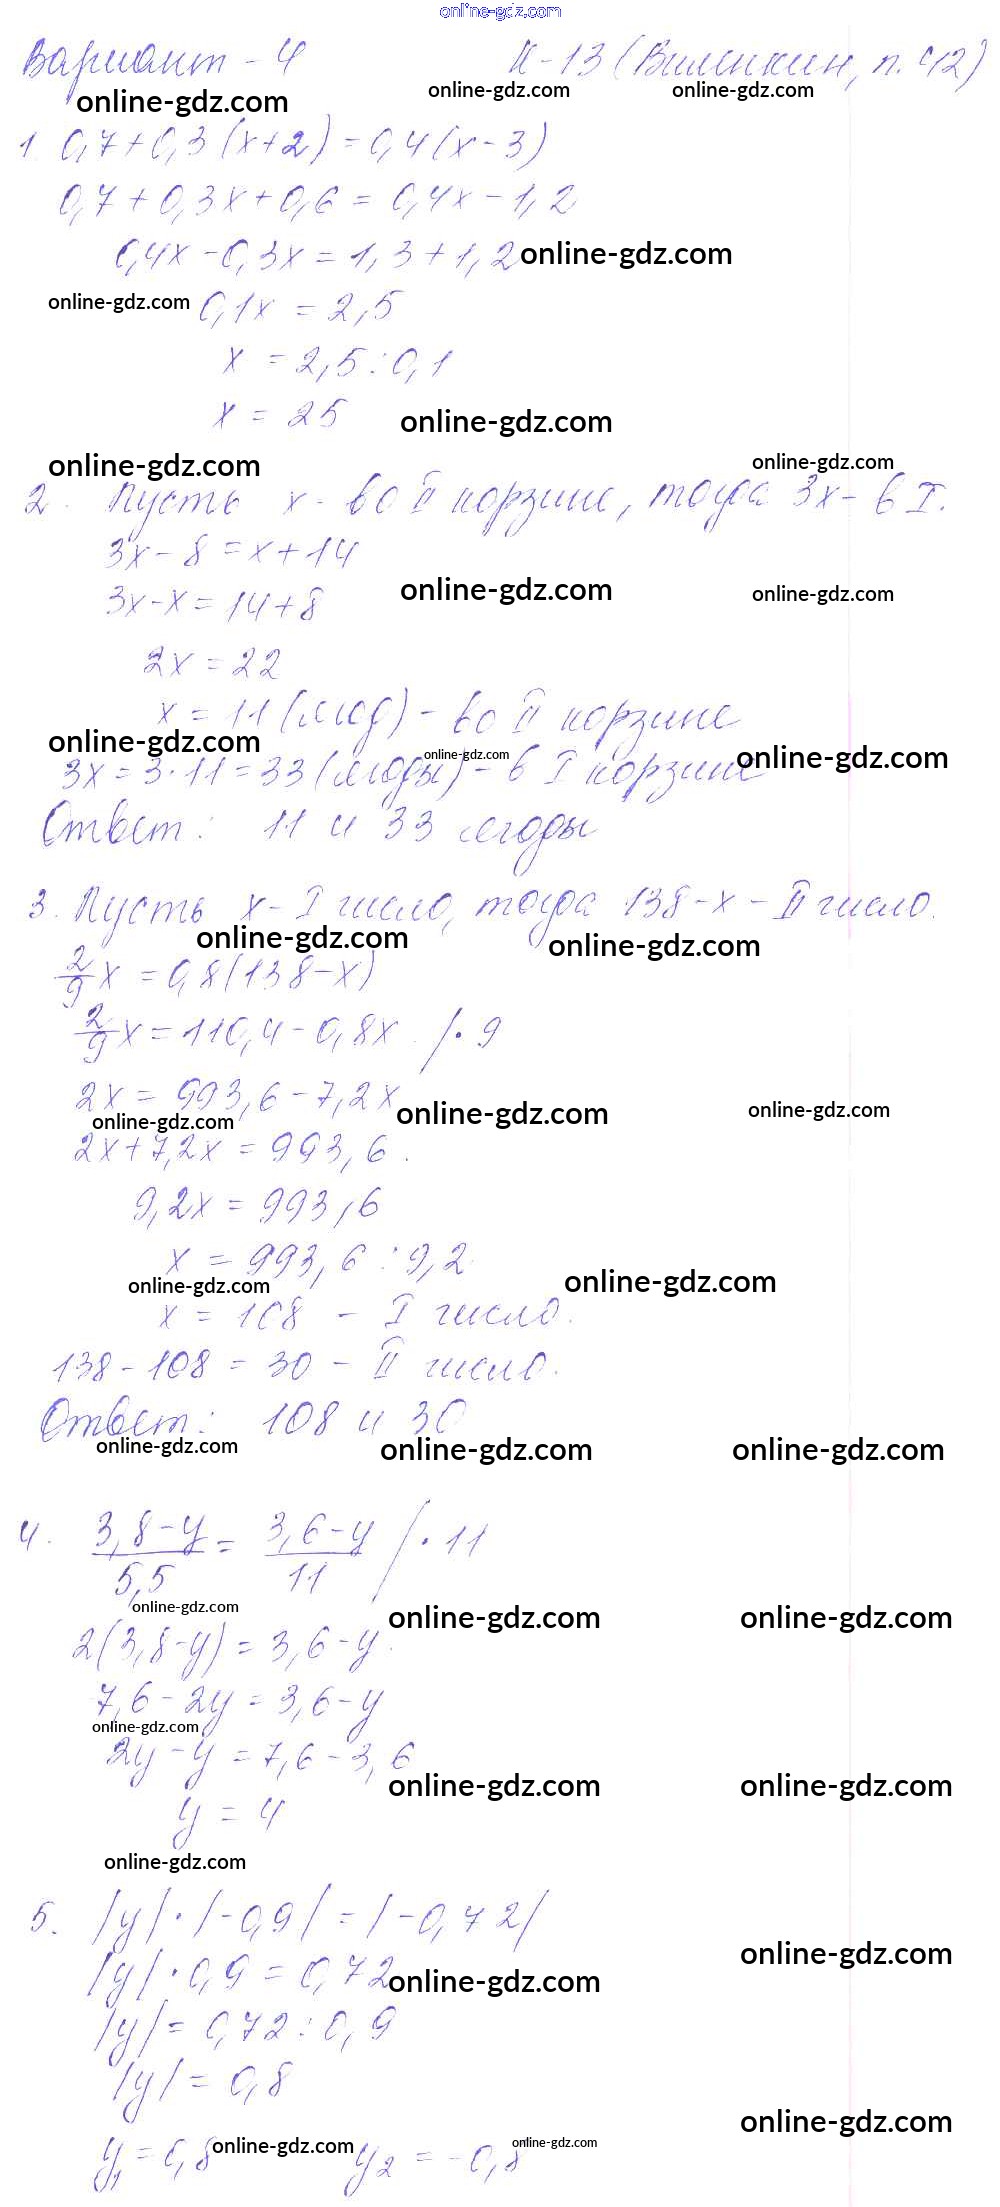 online-gdz.com
Вариант - 4 К-13 (Виленкин, п. 42)
online-gdz.com online-gdz.com online-gdz.com
1. 0,7+0,3(x+2)=0,4(x-3)
0,7+0,3x+0,6=0,4x-1,2
0,4x-0,3x=1,3+1,2 online-gdz.com
online-gdz.com 0,1x = 2,5
x = 2,5:0,1
x = 25 online-gdz.com
online-gdz.com online-gdz.com
2. Пусть x - во II корзине, тогда 3x - в I.
3x-8=x+14
3x-x=14+8 online-gdz.com online-gdz.com
2x=22
x=11(ягод) - во II корзине
online-gdz.com online-gdz.com online-gdz.com
3x=3·11=33(ягоды) - в I корзине
Ответ: 11 и 33 ягоды
3. Пусть x - I число, тогда 138-x - II число.
online-gdz.com online-gdz.com
2/9 x = 0,8(138-x)
2/9 x = 110,4-0,8x /·9
2x = 993,6-7,2x
online-gdz.com online-gdz.com online-gdz.com
2x+7,2x = 993,6.
9,2x = 993,6
x = 993,6:9,2
online-gdz.com online-gdz.com
x = 108 - I число.
138-108 = 30 - II число.
Ответ: 108 и 30
online-gdz.com online-gdz.com online-gdz.com
4. 3,8-y/5,5 = 3,6-y/11 /·11
online-gdz.com online-gdz.com online-gdz.com
2(3,8-y)=3,6-y.
7,6-2y=3,6-y
online-gdz.com
2y-y=7,6-3,6
online-gdz.com online-gdz.com
y = 4
online-gdz.com
5. |y|·|-0,9|=|-0,72|
online-gdz.com
|y|·0,9=0,72 online-gdz.com
|y|=0,72:0,9
|y|=0,8
online-gdz.com
y₁=0,8 online-gdz.com y₂=-0,8 online-gdz.com